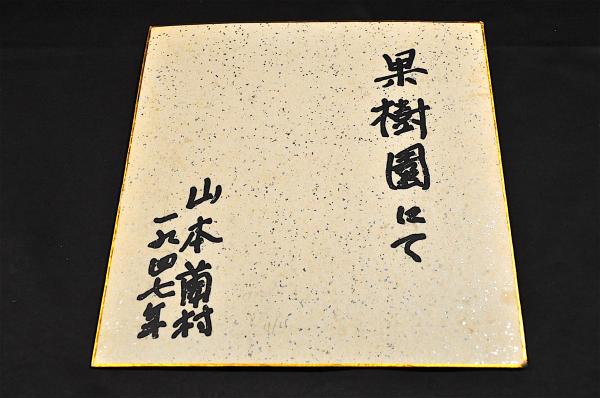 果樹園にて
山本蘭村
一九四七年